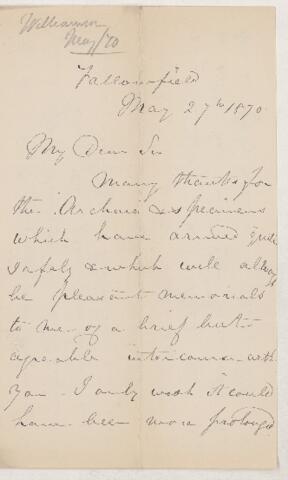 Williamson
May/70
Fallowfield
May 27th 1870
My Dear Sir
Many thanks for
the Orchid & specimens
which have arrived quite
safely & which will always
be pleasant memorials
to me of a brief but
agreable intercourse with
you. I only wish it could
have been more prolonged